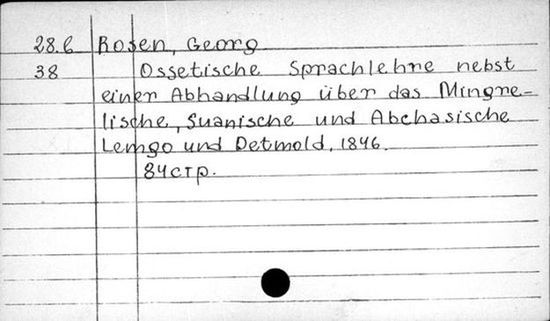 28.6 Rosen, Georg
38 Ossetische Sprachlehre nebst
einer Abhandlung über das Mingre-
lische, Suanische und Abchasische
Lemgo und Detmold, 1846.
84стр.